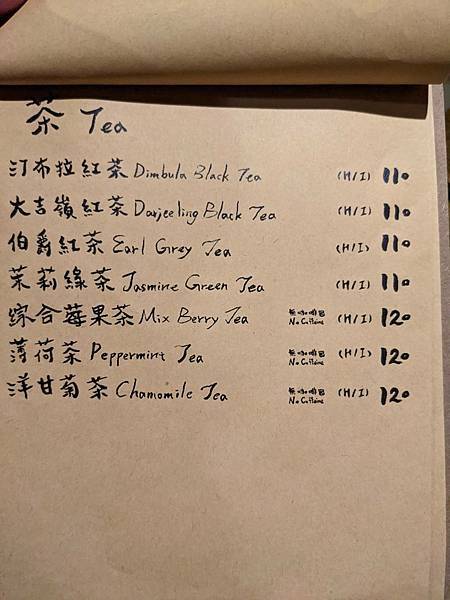 茶 Tea
汀布拉紅茶 Dimbula Black Tea (H/I) 110
大吉嶺紅茶 Darjeeling Black Tea (H/I) 110
伯爵紅茶 Earl Grey Tea (H/I) 110
茉莉綠茶 Jasmine Green Tea (H/I) 110
綜合莓果茶 Mix Berry Tea 無咖啡因 No Caffeine (H/I) 120
薄荷茶 Peppermint Tea 無咖啡因 No Caffeine (H/I) 120
洋甘菊茶 Chamomile Tea 無咖啡因 No Caffeine (H/I) 120